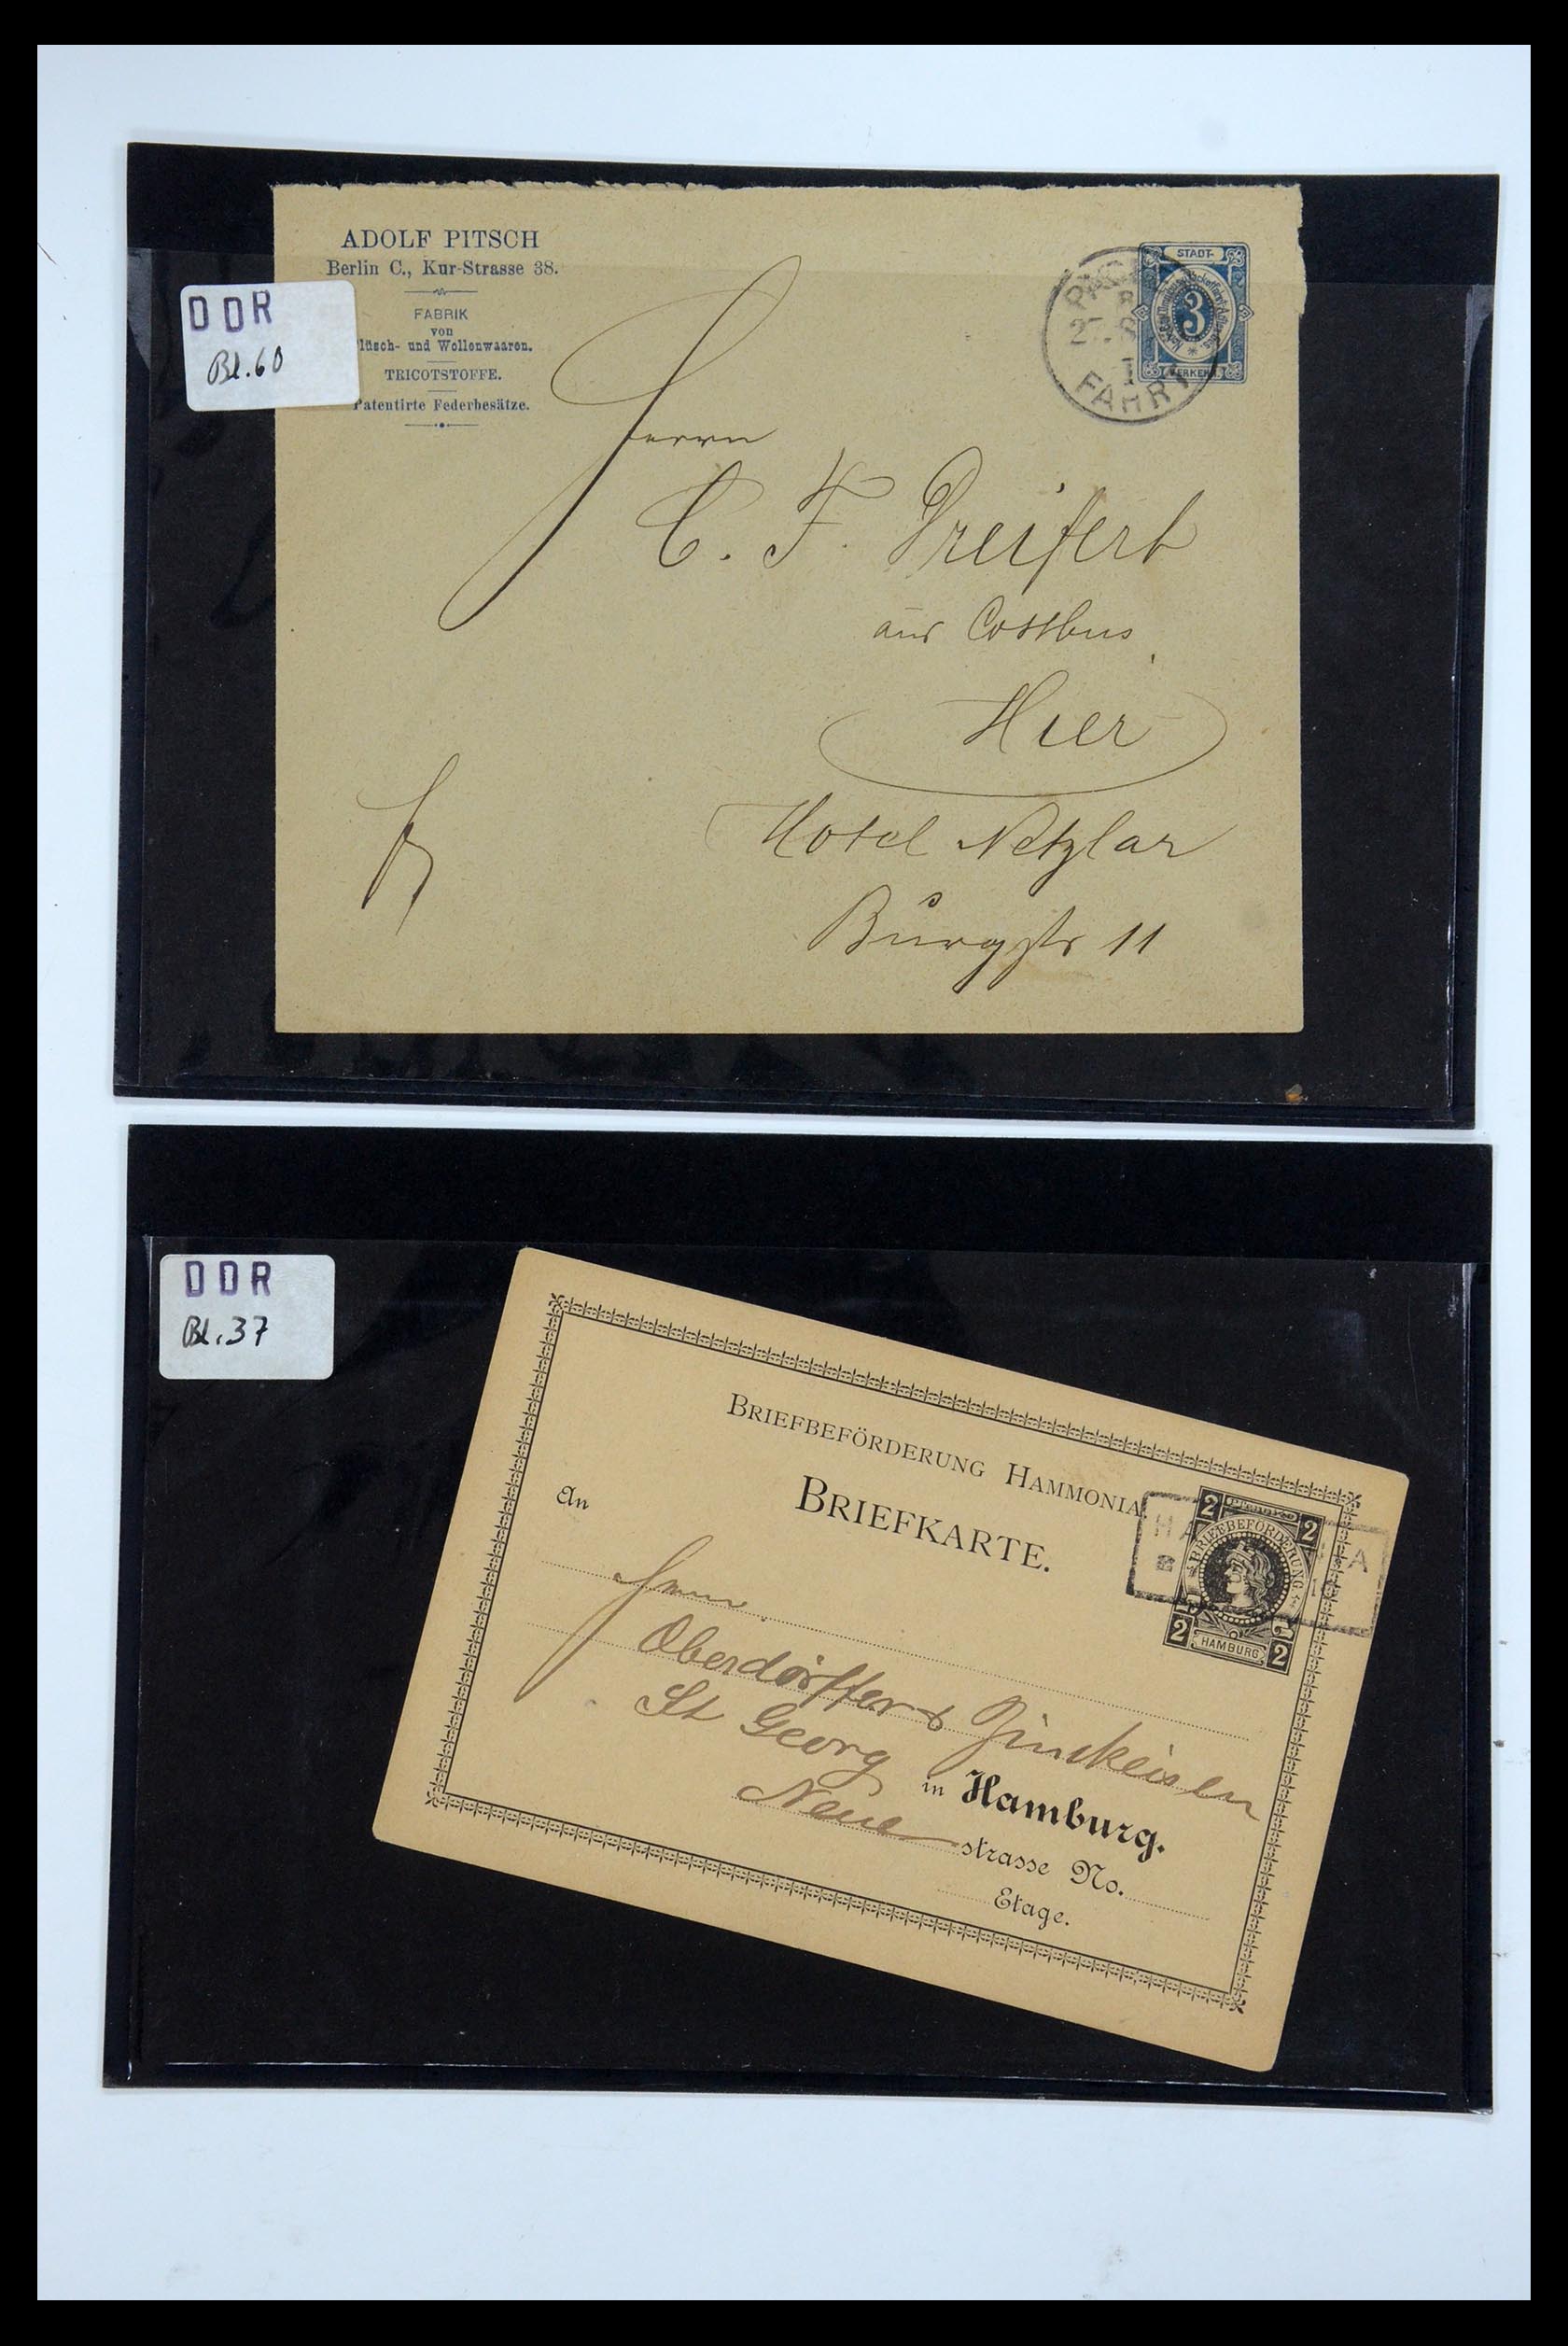 ADOLF PITSCH
Berlin C., Kur-Strasse 38.
FABRIK
von
lüsch- und Wollenwaaren.
TRICOTSTOFFE.
Patentirte Federbesätze.
DDR
Bl.60
STADT-
3
VERKEHR.
FAHRT
Herrn
C. F. Dreifert
aus Cottbus
Hier
Hotel Netzlar
Burgstr 11
DDR
Bl.37
BRIEFBEFÖRDERUNG HAMMONIA.
BRIEFKARTE.
2 Pfennig 2
BRIEFBEFÖRDERUNG
2 HAMBURG 2
An
Herrn
Oberdörffer & Zinckeisen
St Georg
in Hamburg.
Neue strasse No.
Etage.